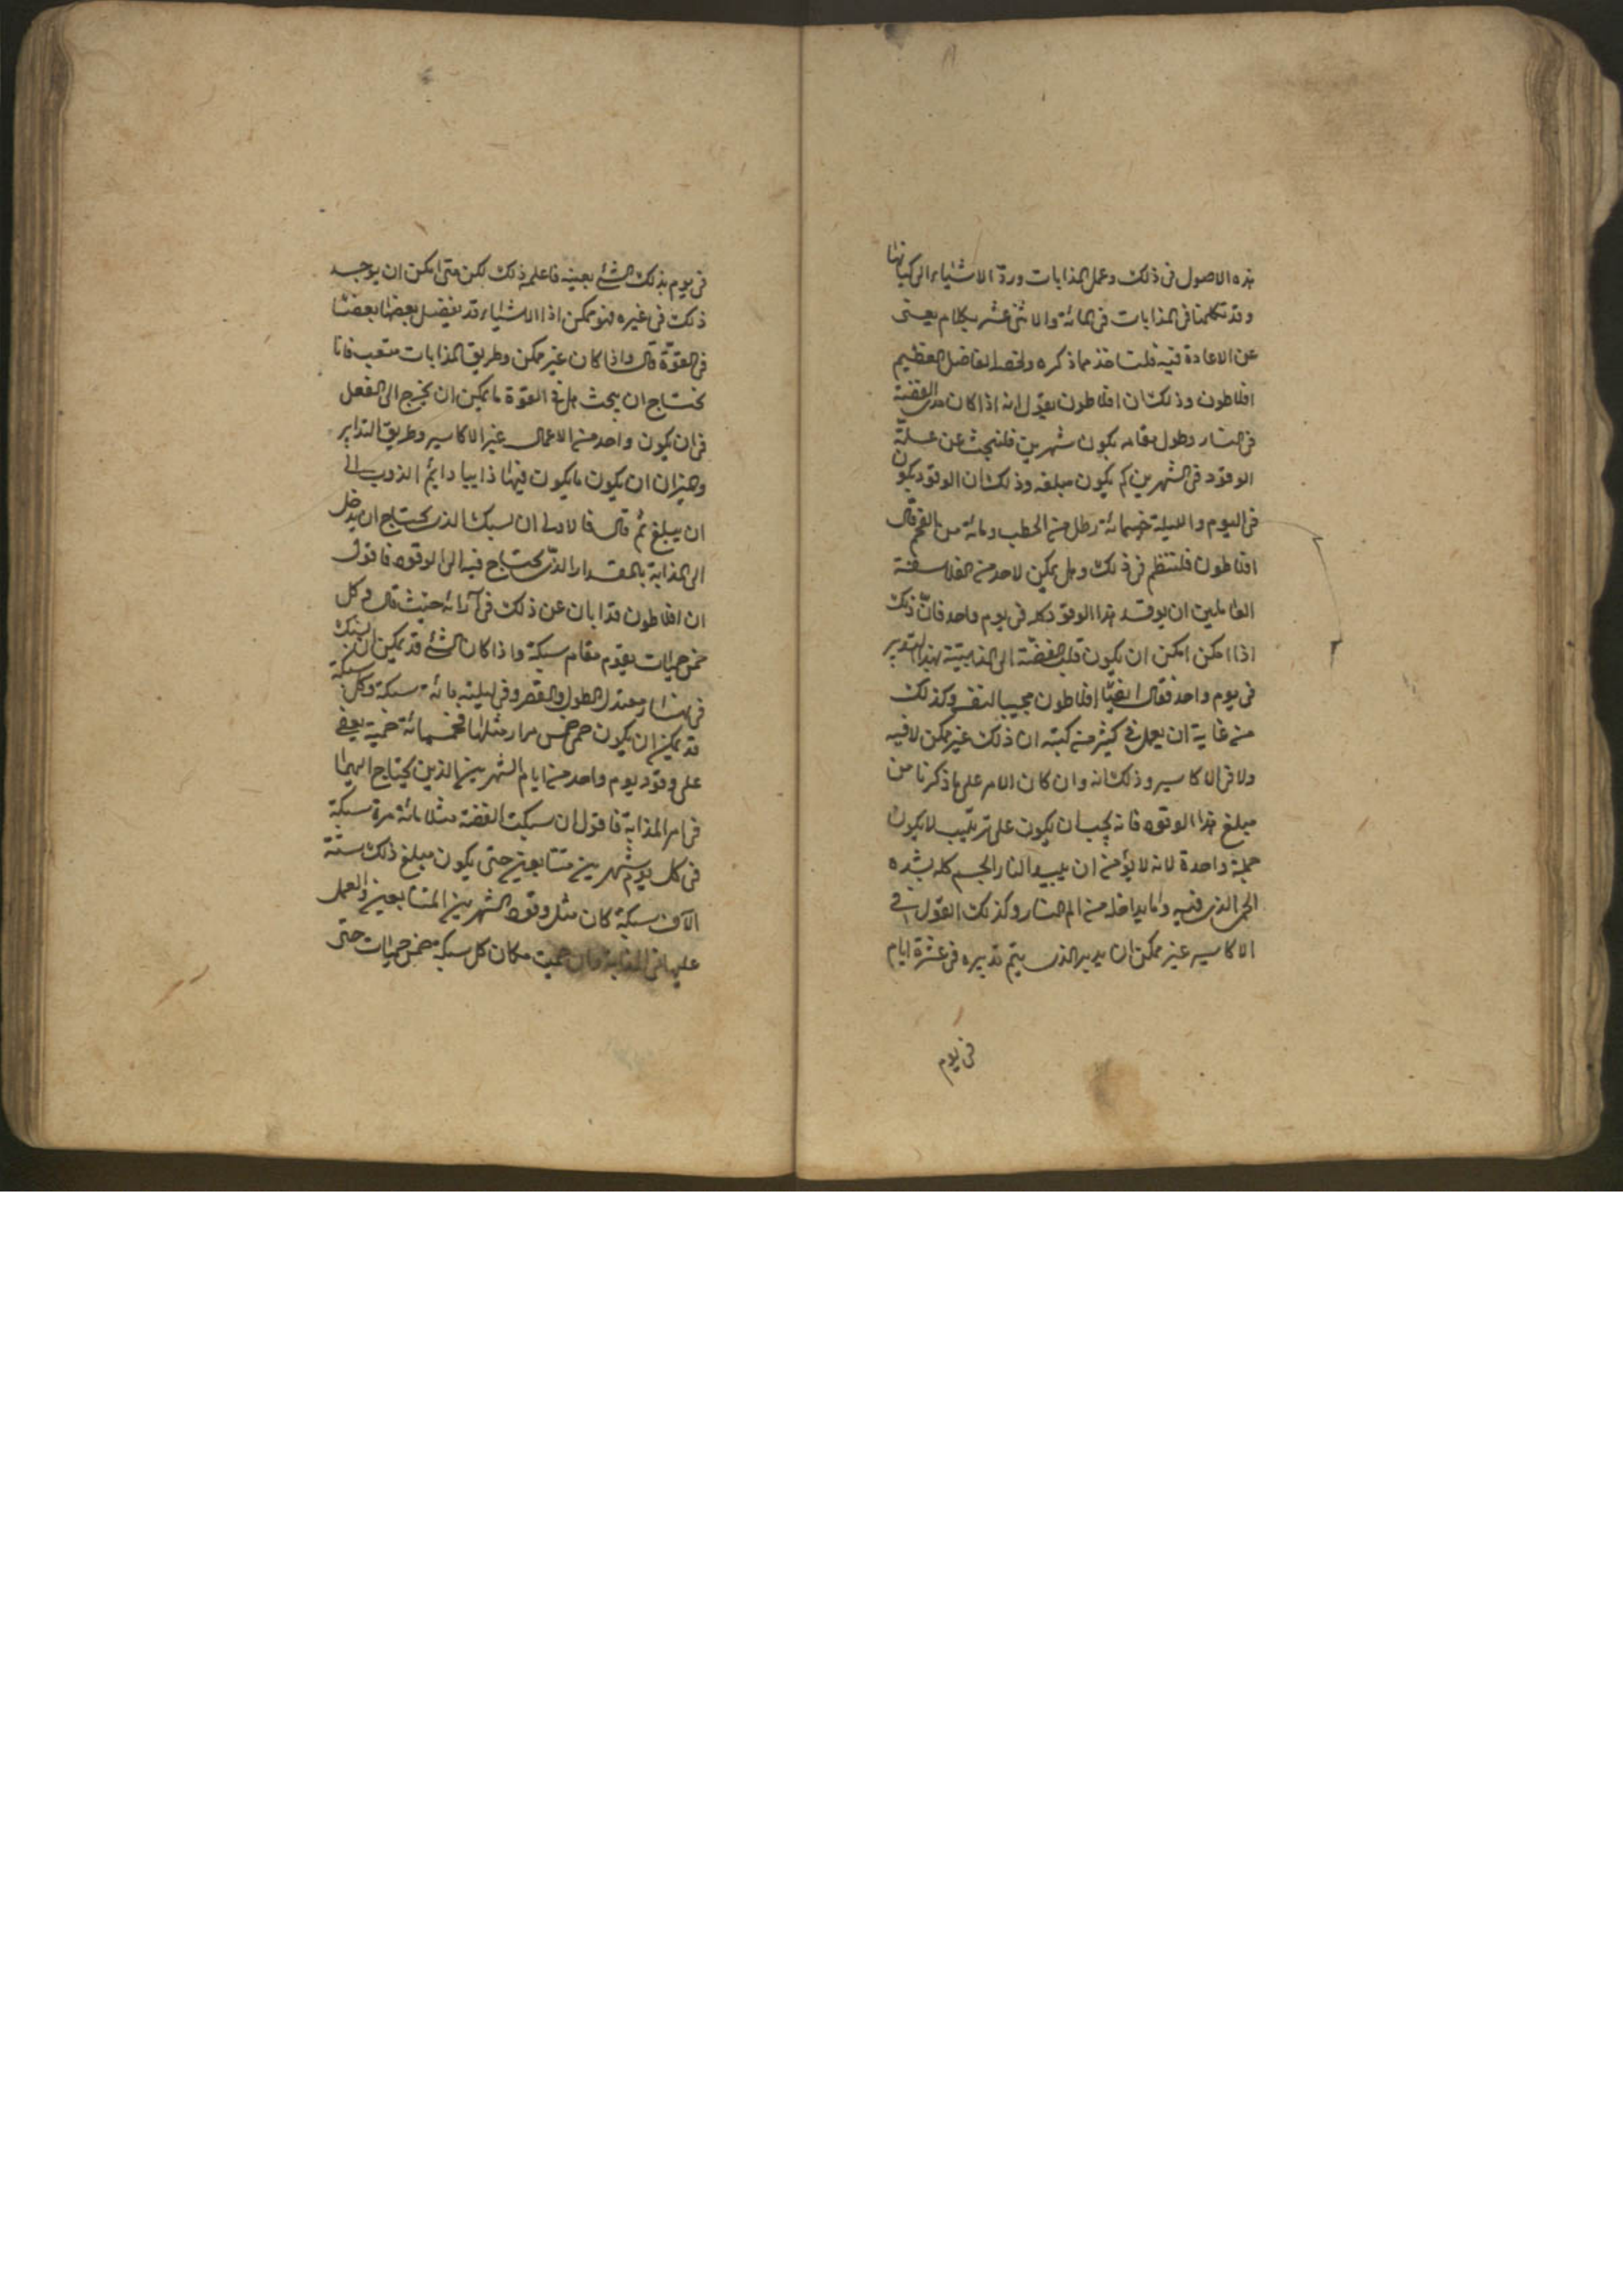 هذه الاصول فى ذلك وعمل المذابات وردّ الاشياء الى كيانها
وقد تكلمنا فى المذابات فى المائة والاثنى عشر بكلام يعنى
عن الاعادة فيه قلت خذ ما ذكره ولخصه الفاضل العظيم
افلاطون وذلك ان افلاطون يقول انه اذا كان الفضة
فى النار وطول مقامه يكون شهرين فلنبحث عن علّة
الوقود فى الشهرين كم يكون مبلغه وذلك ان الوقود يكون
فى اليوم والليلة خمسمائة رطل من الحطب ومائة من الفحم قال
افلاطون فلننظر فى ذلك وهل يمكن لاحد من الفلاسفة
العاملين ان يوقد هذا الوقود كله فى يوم واحد فانّ ذلك
اذا امكن امكن ان يكون قلب الفضّة الى الذهبيّة بهذا التدبير
فى يوم واحد فقال ايضًا افلاطون مجيبا لنفسه وكذلك
من غاية ان يعمل فى كثير من كتبه ان ذلك غير ممكن لا فيه
ولا فى الاكاسير وذلك انه وان كان الامر على ما ذكرنا من
مبلغ هذا الوقود فانه يجب ان يكون على ترتيب لا يكون
جملة واحدة لانه لا يؤمن ان يبيد النار الجسم كله بشده
الحمى الذى فيه واما يداخله من الم النار وكذلك القول فى
الاكاسير غير ممكن ان يدبر الذى يتم تدبيره فى عشرة ايام
فى يوم
فى يوم بذلك الشئ بعينه فاعلم ذلك لكن متى امكن ان يوجد
ذلك فى غيره فهو ممكن اذا الاشياء قد يفضل بعضها بعضا
فى القوّة قال واذا كان غير ممكن وطريق المذابات متعب فانا
نحتاج ان نبحث هل فى القوّة ما يمكن ان يخرج الى الفعل
فى ان يكون واحد من الاعمال غير الاكاسير وطريق التدابير
والميزان ان يكون ما يكون فيها ذايبا دايم الذوب الى
ان يبلغ ثم قال فالاولى ان نسبك الذى يحتاج ان يدخل
الى المذابة بالمقدار الذى يحتاج فيه الى الوقود فاقول
ان افلاطون قد ابان عن ذلك فى آرائه حيث قال وكل
خمس حميات يقوم مقام سبكة واذا كان الشئ قد يمكن ان يسبك
فى نهار معتدل الطول والقصر وفى ليلته مائة سبكة وكل سبكة
قد يمكن ان يكون حمى خمس مرار مثلها فخمسمائة حمية يعفى
على وقود يوم واحد من ايام الشهرين الذين يحتاج اليهما
فى امر المذابة فاقول ان سبكت الفضة مثلا مائة مرة سبكة
فى كل يوم شهرين متتابعين حتى يكون مبلغ ذلك ستة
الآف سبكة كان مثل وقود الشهرين المتتابعين والعمل
عليها فى المذابة وان حميت مكان كل سبكة خمس حميات حتى